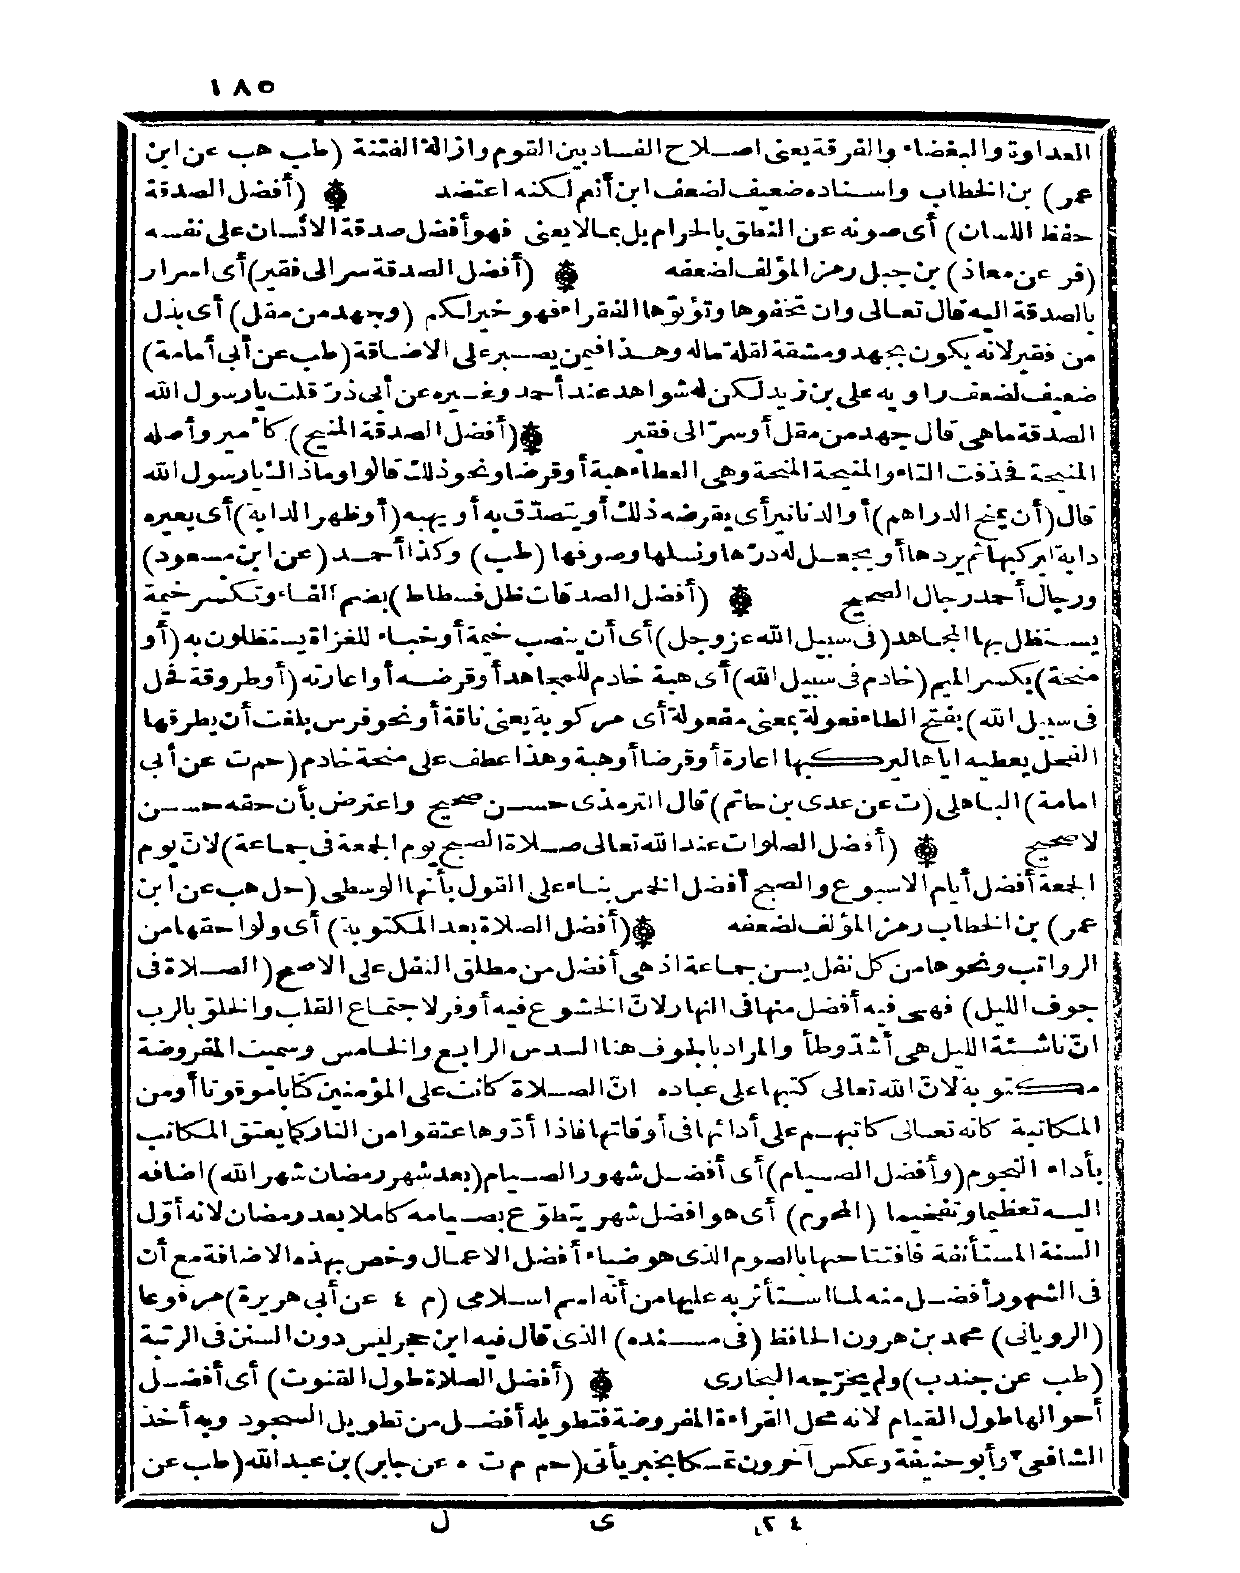 ١٨٥
العداوة والبغضاء والفرقة يعنى اصلاح الفساد بين القوم وازالة الفتنة (طب هب عن ابن
عمر) بن الخطاب واسناده ضعيف لضعف ابن أنعم لكنه اعتضد (أفضل الصدقة
حفظ اللسان) أى صونه عن النطق بالحرام بل بما لا يعنى فهو أفضل صدقة الانسان على نفسه
(فر عن معاذ) بن جبل رمز المؤلف لضعفه (أفضل الصدقة سر الى فقير) أى اسرار
بالصدقة اليه قال تعالى وان تخفوها وتؤتوها الفقراء فهو خير لكم (وجهد من مقل) أى بذل
من فقير لانه يكون بجهد ومشقة لقلة ماله وهذا فيمن يصبر على الاضاقة (طب عن أبى أمامة)
ضعيف لضعف راويه على بن زيد لكن له شواهد عند أحمد وغيره عن أبى ذرّ قلت يا رسول الله
الصدقة ماهى قال جهد من مقل أو سرّ الى فقير (أفضل الصدقة المنيح) كأمير وأصله
المنيحة فحذفت التاء والمنيحة المنحة وهى العطاء هبة أو قرضا ونحو ذلك قالوا وما ذاك يا رسول الله
قال (أن يمنح الدراهم) أو الدنانير أى يقرضه ذلك أو يتصدّق به أو يهبه (أو ظهر الدابة) أى يعيره
دابة ليركبها ثم يردها أو يجعل له درّها ونسلها وصوفها (طب) وكذا أحمد (عن ابن مسعود)
ورجال أحمد رجال الصحيح (أفضل الصدقات ظل فسطاط) بضم الفاء وتكسر خيمة
يستظل بها المجاهد (فى سبيل الله عز وجل) أى أن ينصب خيمة أو خباء للغزاة يستظلون به (أو
منحة) بكسر الميم (خادم فى سبيل الله) أى هبة خادم للمجاهد أو قرضه أو اعارته (أو طروقة فحل
فى سبيل الله) بفتح الطاء فعولة بمعنى مفعولة أى مركوبة يعنى ناقة أو نحو فرس بلغت أن يطرقها
الفحل يعطيه اياها ليركبها اعارة أو قرضا أو هبة وهذا عطف على منحة خادم (حم ت عن أبى
امامة) الباهلى (ت عن عدى بن حاتم) قال الترمذى حسن صحيح واعترض بأن حقه حسن
لا صحيح (أفضل الصلوات عند الله تعالى صلاة الصبح يوم الجمعة فى جماعة) لانّ يوم
الجمعة أفضل أيام الاسبوع والصبح أفضل الخمس بناء على القول بأنها الوسطى (حل هب عن ابن
عمر) بن الخطاب رمز المؤلف لضعفه (أفضل الصلاة بعد المكتوبة) أى ولواحقها من
الرواتب ونحوها من كل نفل يسن جماعة اذ هى أفضل من مطلق النفل على الاصح (الصلاة فى
جوف الليل) فهى فيه أفضل منها فى النهار لانّ الخشوع فيه أوفر لاجتماع القلب والخلق بالرب
انّ ناشئة الليل هى أشدّ وطأ والمراد بالجوف هنا السدس الرابع والخامس وسميت المفروضة
مكتوبة لانّ الله تعالى كتبها على عباده انّ الصلاة كانت على المؤمنين كتابا موقوتا أو من
المكاتبة كانه تعالى كاتبهم على أدائها فى أوقاتها فاذا أدّوها عتقوا من النار كما يعتق المكاتب
بأداء النجوم (وأفضل الصيام) أى أفضل شهور الصيام (بعد شهر رمضان شهر الله) اضافه
اليه تعظيما وتفخيما (المحرم) أى هو افضل شهر يتطوّع بصيامه كاملا بعد رمضان لانه أوّل
السنة المستأنفة فافتتاحها بالصوم الذى هو ضياء أفضل الاعمال وخص بهذه الاضافة مع أن
فى الشهور أفضل منه لما استأثر به عليها من أنه اسم اسلامى (م ٤ عن أبى هريرة) مرفوعا
(الرويانى) محمد بن هرون الحافظ (فى مسنده) الذى قال فيه ابن حجر ليس دون السنن فى الرتبة
(طب عن جندب) ولم يخرّجه البخارى (أفضل الصلاة طول القنوت) أى أفضل
أحوالها طول القيام لانه محل القراءة المفروضة فتطويله أفضل من تطويل السجود وبه أخذ
الشافعى وأبو حنيفة وعكس آخرون تمسكا بخبر يأتى (حم م ت ه عن جابر) بن عبد الله (طب عن
٢٤ ى ل